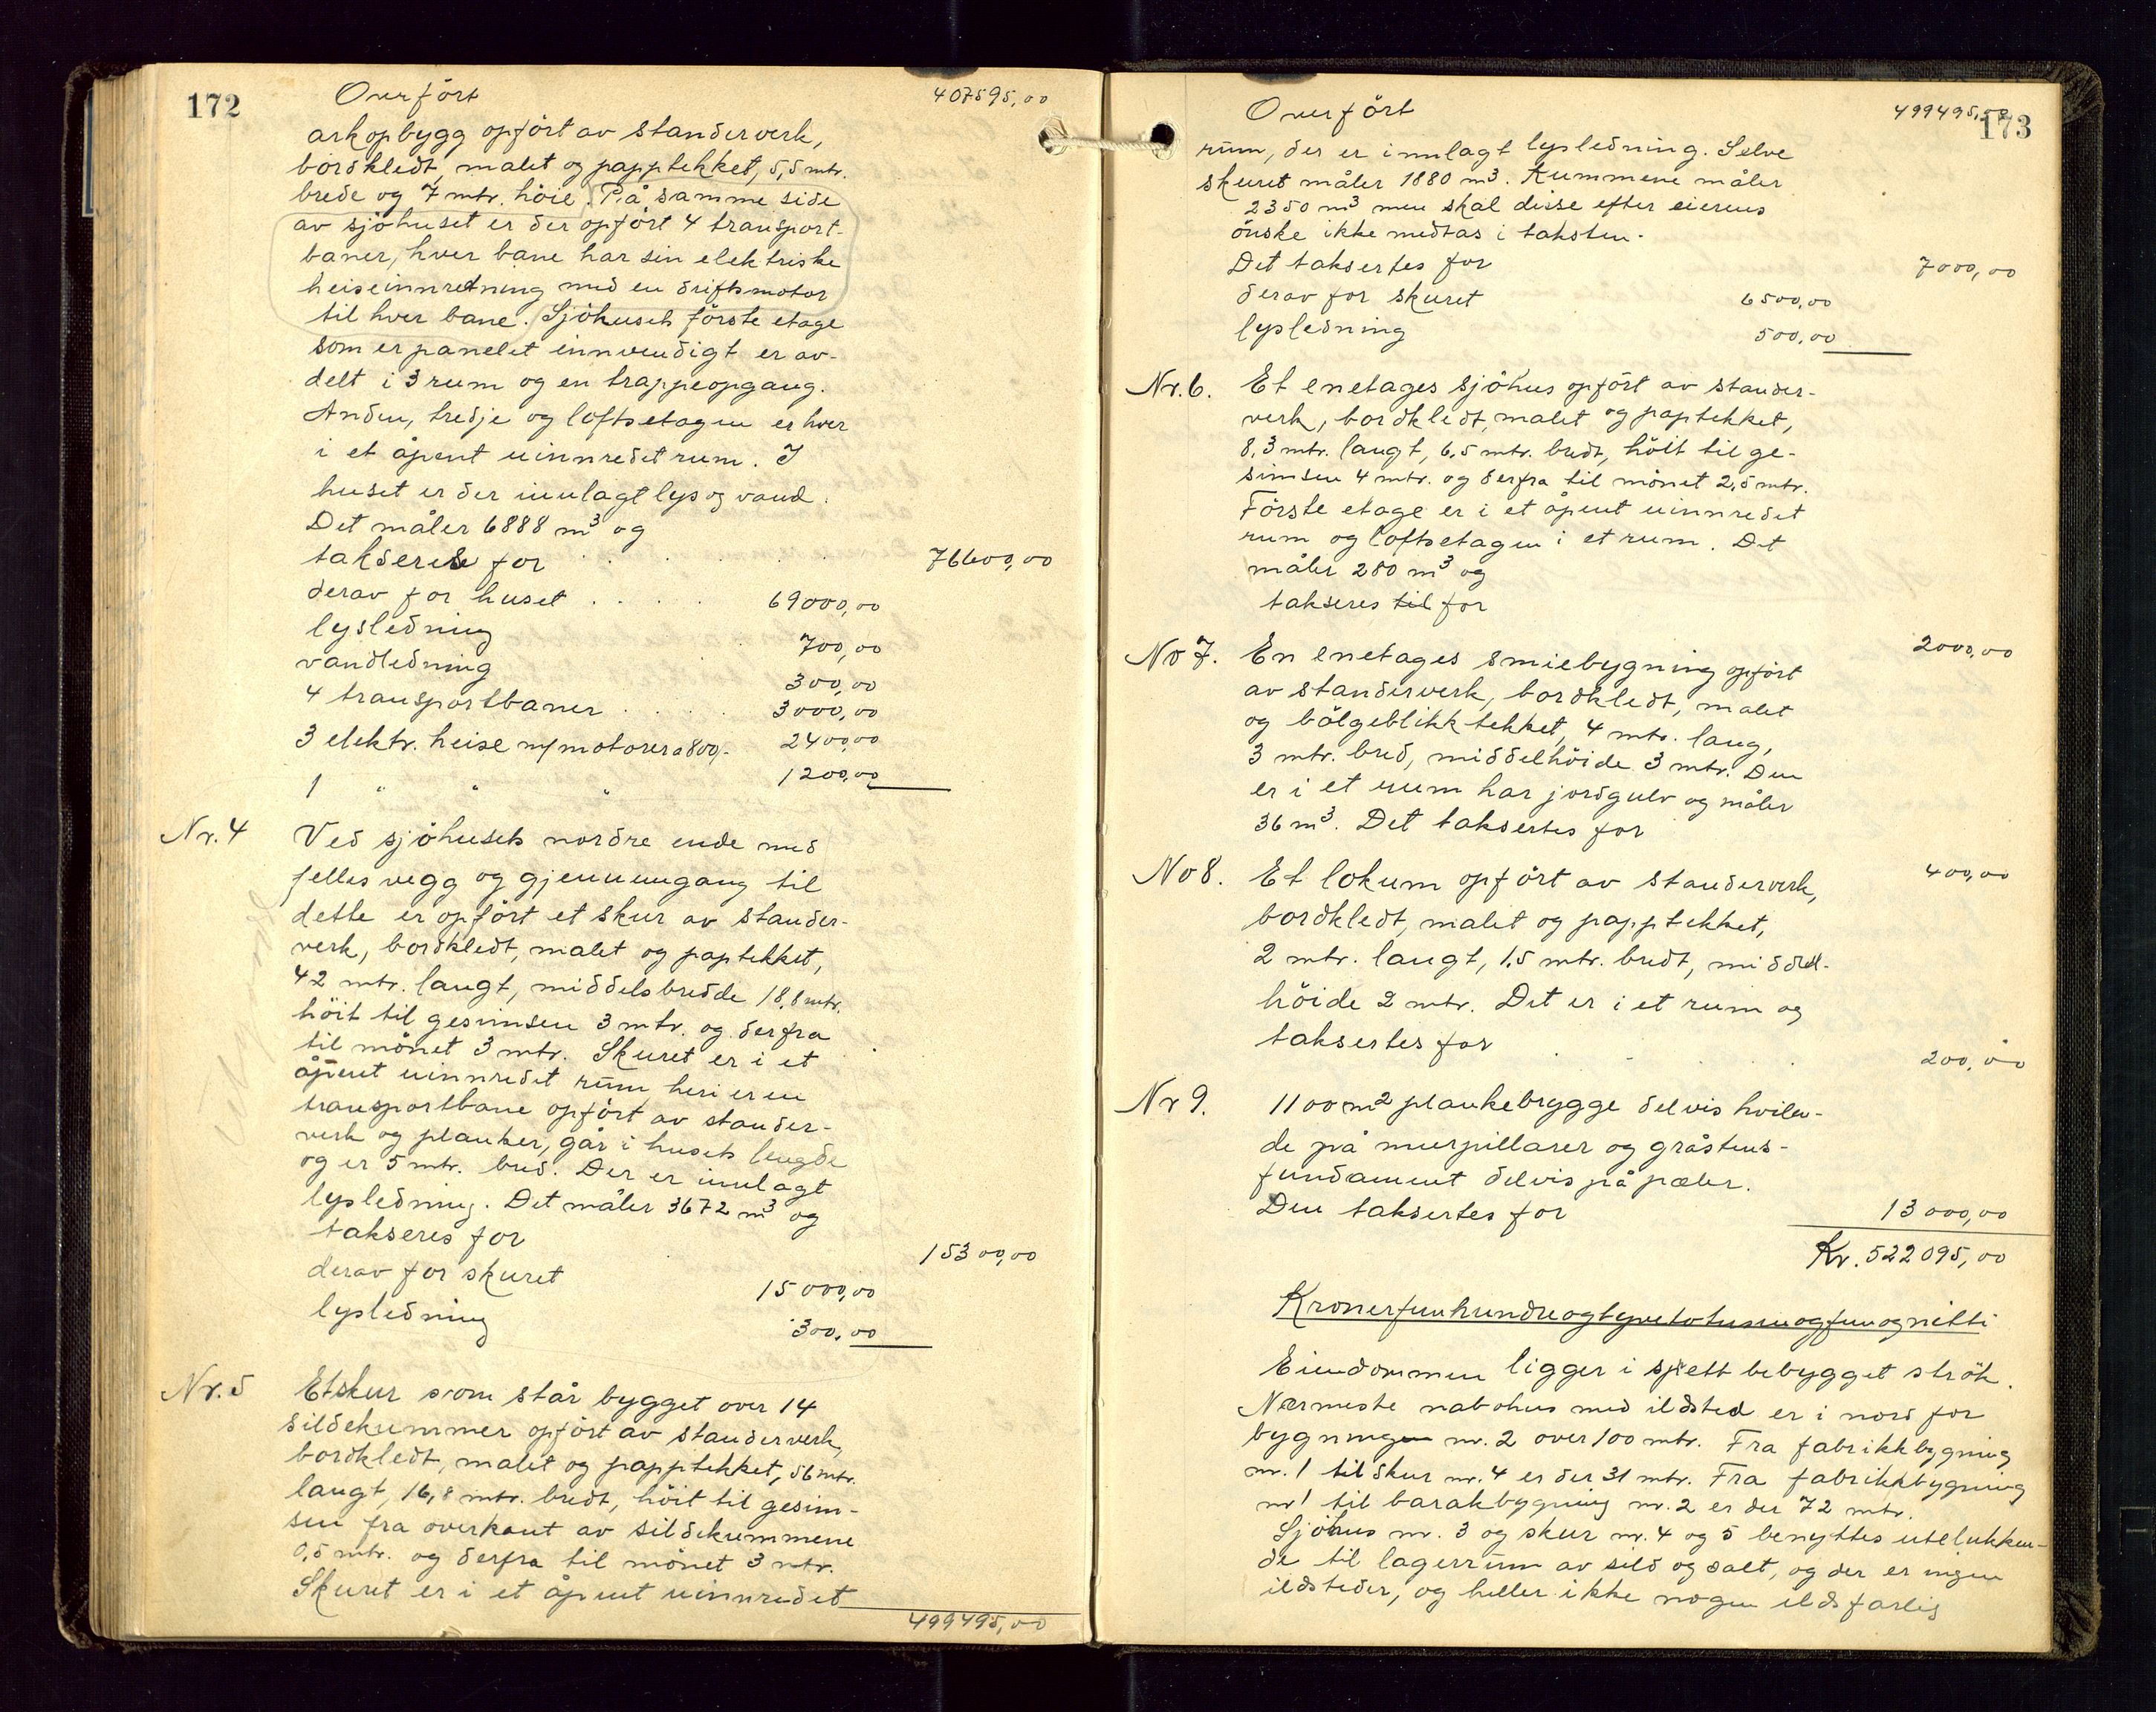 172
Overfört 407595,00
arkopbygg opfört av standerverk,
bordkledt, malet og papptekket, 5,5 mtr.
brede og 7 mtr. höie. På samme side
av sjöhuset er der opfört 4 transport-
baner, hver bane har sin elektriske
heiseinnretning med en driftsmotor
til hver bane. Sjöhusets förste etage
som er panelet innvendigt er av-
delt i 3 rum og en trappeopgang.
Anden, tredje og loftsetagen er hver
i et åpent uinnredet rum. I
huset er der innlagt lys og vand.
Det måler 6888 m³ og
takseres for . . . . 76600,00
derav for huset . . . . 69000,00
lysledning 700,00
vandledning 300,00
4 transportbaner . . . . 3000,00
3 elektr. heise m/motorer a 800,- 2400,00
1 " " " 1200,00
Nr. 4 Ved sjöhusets nordre ende med
felles vegg og gjennemgang til
dette er opfört et skur av stander-
verk, bordkledt, malet og paptekket,
42 mtr. langt, middelsbredde 18,8 mtr.
höit til gesimsen 3 mtr. og derfra
til mönet 3 mtr. Skuret er i et
åpent uinnredet rum heri er en
transportbane opfört av stander-
verk og planker, går i husets lengde
og er 5 mtr. bred. Der er innlagt
lysledning. Det måler 3672 m³ og
takseres for 15300,00
derav for skuret 15000,00
lysledning 300,00
Nr. 5 Et skur som står bygget over 14
sildekummer opfört av standerverk,
bordkledt, malet og papptekket, 56 mtr.
langt, 16,8 mtr. bredt, höit til gesim-
sen fra overkant av sildekummene
0,5 mtr. og derfra til mönet 3 mtr.
Skuret er i et åpent uinnredet
499495,00
173
Overfört 499495,00
rum, der er innlagt lysledning. Selve
skuret måler 1880 m³. Kummene måler
2350 m³ men skal disse efter eierens
önske ikke medtas i taksten.
Det taksertes for 7000,00
derav for skuret 6500,00
lysledning 500,00
Nr. 6. Et enetages sjöhus opfört av stander-
verk, bordkledt, malet og paptekket,
8,3 mtr. langt, 6,5 mtr. bredt, höit til ge-
simsen 4 mtr. og derfra til mönet 2,5 mtr.
Förste etage er i et åpent uinnredet
rum og loftsetagen i et rum. Det
måler 280 m³ og
takseres til for 2000,00
No 7. En enetages smiebygning opfört
av standerverk, bordkledt, malet
og bölgeblikktekket, 4 mtr. lang,
3 mtr. bred, middelhöide 3 mtr. Den
er i et rum har jordgulv og måler
36 m³. Det taksertes for 400,00
No 8. Et lokum opfört av standerverk,
bordkledt, malet og papptekket,
2 mtr. langt, 1,5 mtr. bredt, middel-
höide 2 mtr. Det er i et rum og
taksertes for . . . 200,00
Nr 9. 1100 m² plankebrygge delvis hvilen-
de på murpillarer og gråstens-
fundament delvis på pæler.
Den taksertes for 13000,00
Kr. 522095,00
Kronerfemhundreogtyvetotusenogfemognitti
Eiendommen ligger i spett bebygget strök.
Nærmeste nabohus med ildsted er i nord for
bygningen nr. 2 over 100 mtr. Fra fabrikkbygning
nr. 1 til skur nr. 4 er der 31 mtr. Fra fabrikkbygning
nr 1 til barakbygning nr. 2 er der 72 mtr.
Sjöhus nr. 3 og skur nr. 4 og 5 benyttes utelukken-
de til lagerrum av sild og salt, og der er ingen
ildsteder, og heller ikke nogen ildsfarlig